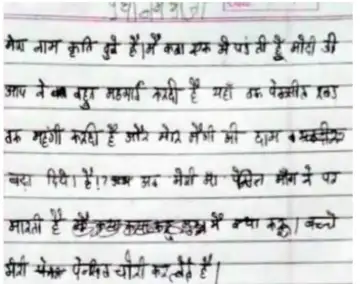 प्रधानमंत्री जी
मेरा नाम कृति दुबे है। मैं कक्षा एक में पढ़ती हूँ मोदी जी
आप ने बहुत महगाई करदी है यहाँ तक पेन्सील रबड़
तक महंगी करदी है और मेरे मैगी की दाम
बढ़ा दिये। है।? अब मेरी मा पेंसिल माँगने पर
मारती है मैं क्या करू। बच्चे
मेरी पेन्सिल चोरी कर लेते है।